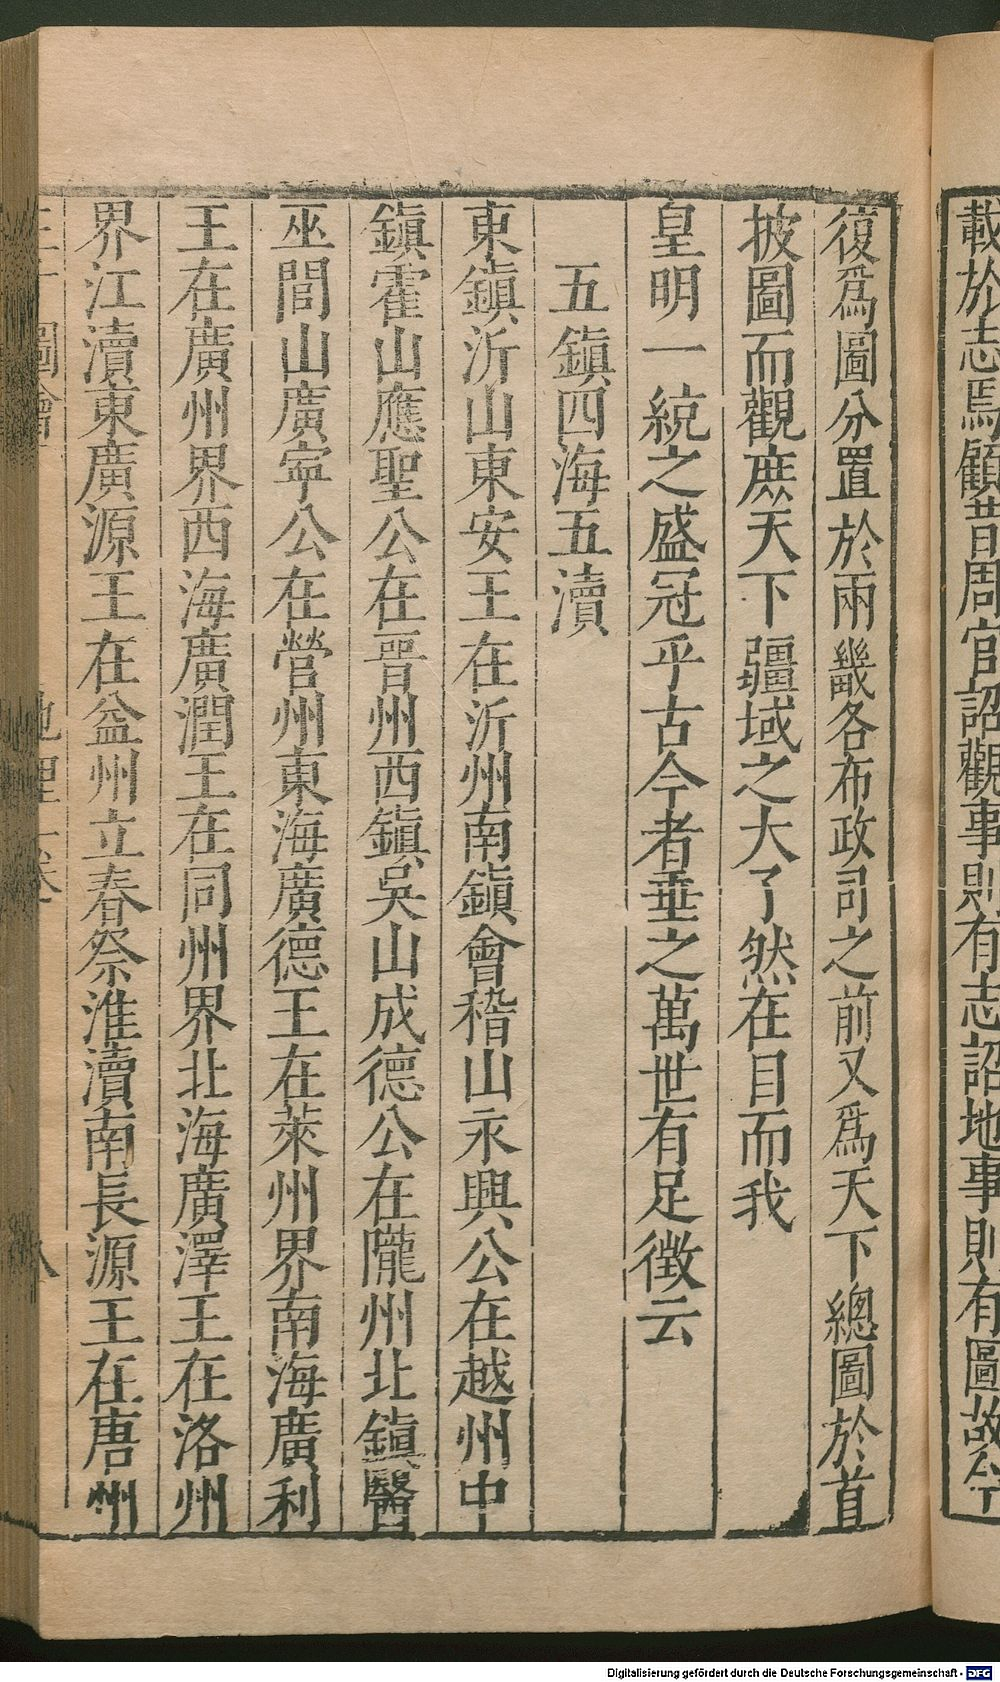 載於志焉顧昔周官詔觀事則有志詔地事則有圖故今
復爲圖分置於兩畿各布政司之前又爲天下總圖於首
披圖而觀庶天下疆域之大了然在目而我
皇明一統之盛冠乎古今者垂之萬世有足徵云
五鎮四海五瀆
東鎮沂山東安王在沂州南鎮會稽山永興公在越州中
鎮霍山應聖公在晋州西鎮吳山成德公在隴州北鎮醫
巫閭山廣寧公在營州東海廣德王在萊州界南海廣利
王在廣州界西海廣潤王在同州界北海廣澤王在洛州
界江瀆東廣源王在益州立春祭淮瀆南長源王在唐州
圖會
地理一卷
八
Digitalisierung gefördert durch die Deutsche Forschungsgemeinschaft - DFG